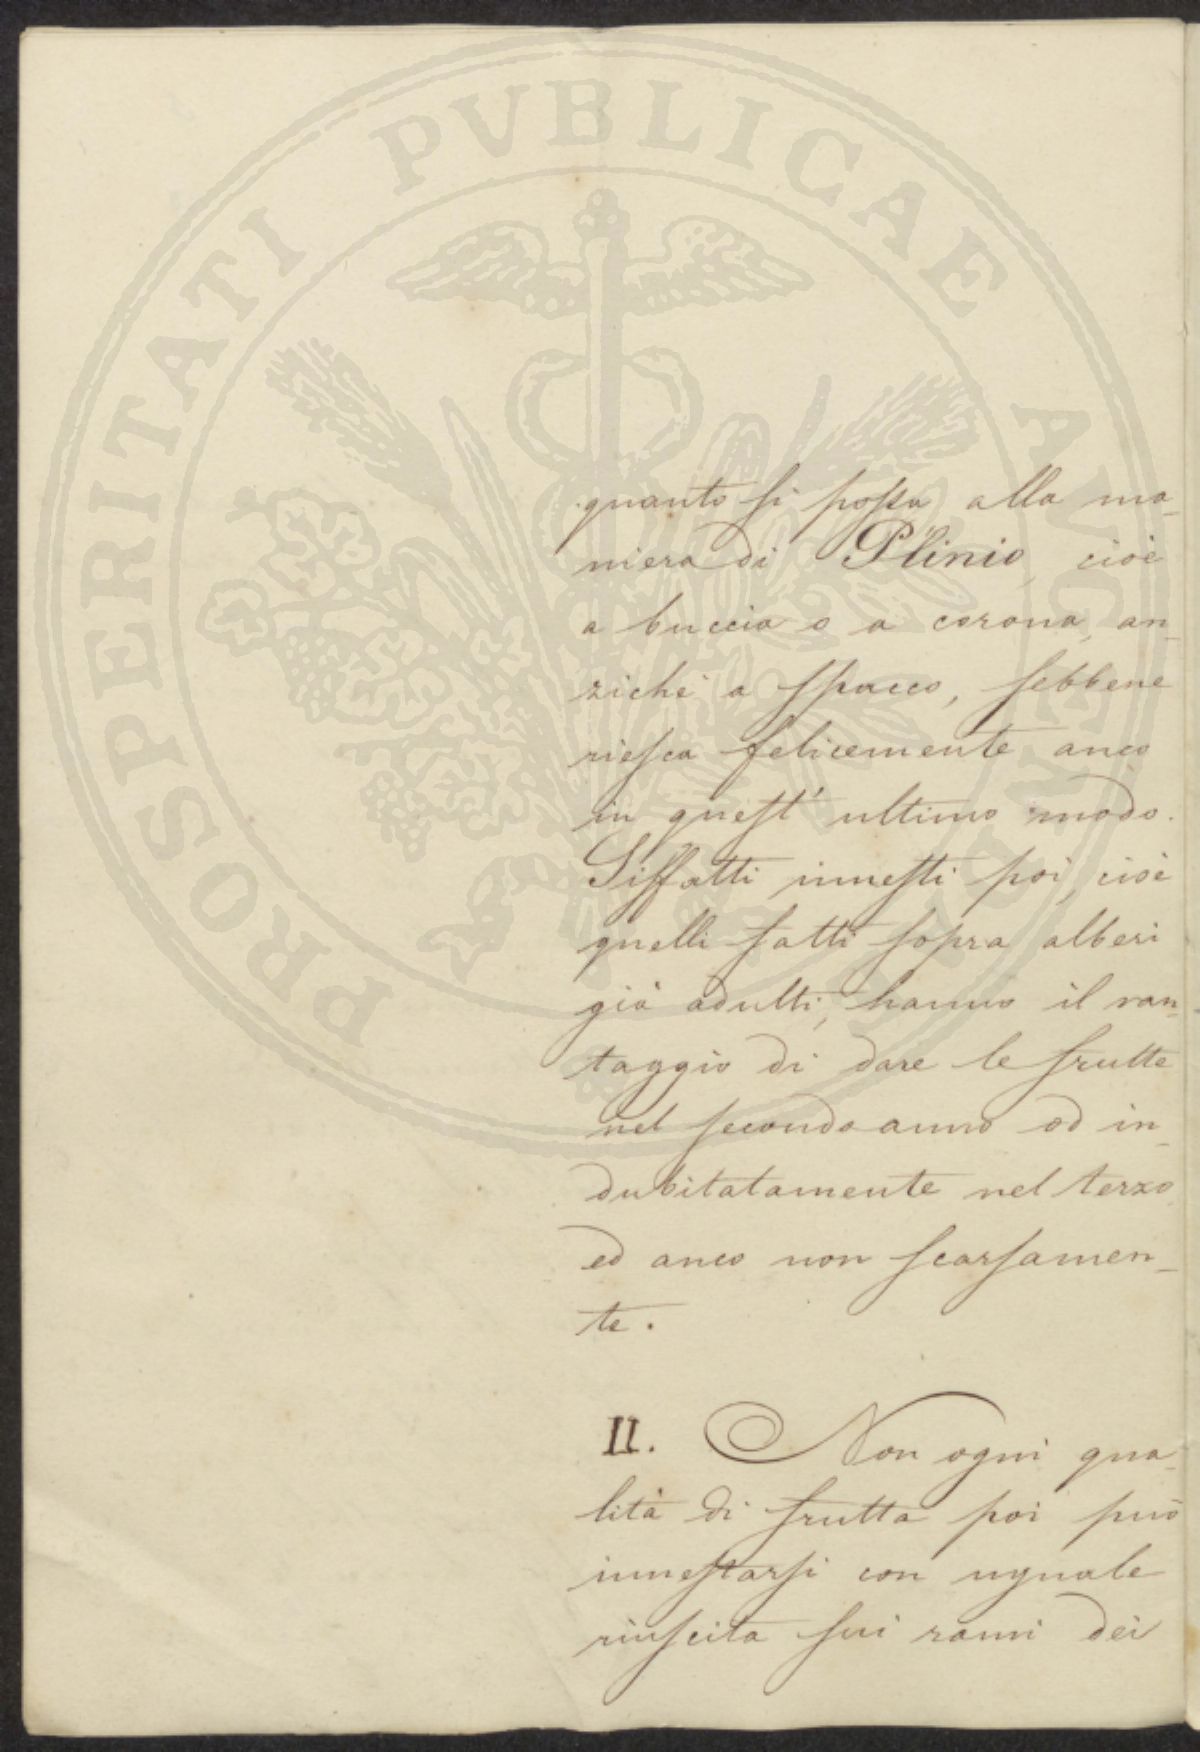 PROSPERITATI PVBLICAE AVGENDAE
quanto si possa alla ma-
niera di Plinio, cioè
a buccia o a corona, an-
zichè a spacco, sebbene
riesca felicemente anco
in quest' ultimo modo.
Siffatti innesti poi, cioè
quelli fatti sopra alberi
già adulti, hanno il van-
taggio di dare le frutte
nel secondo anno od in-
dubitatamente nel terzo
ed anco non scarsamen-
te.
II. Non ogni qua-
lità di frutta poi può
innestarsi con uguale
riuscita sui rami dei